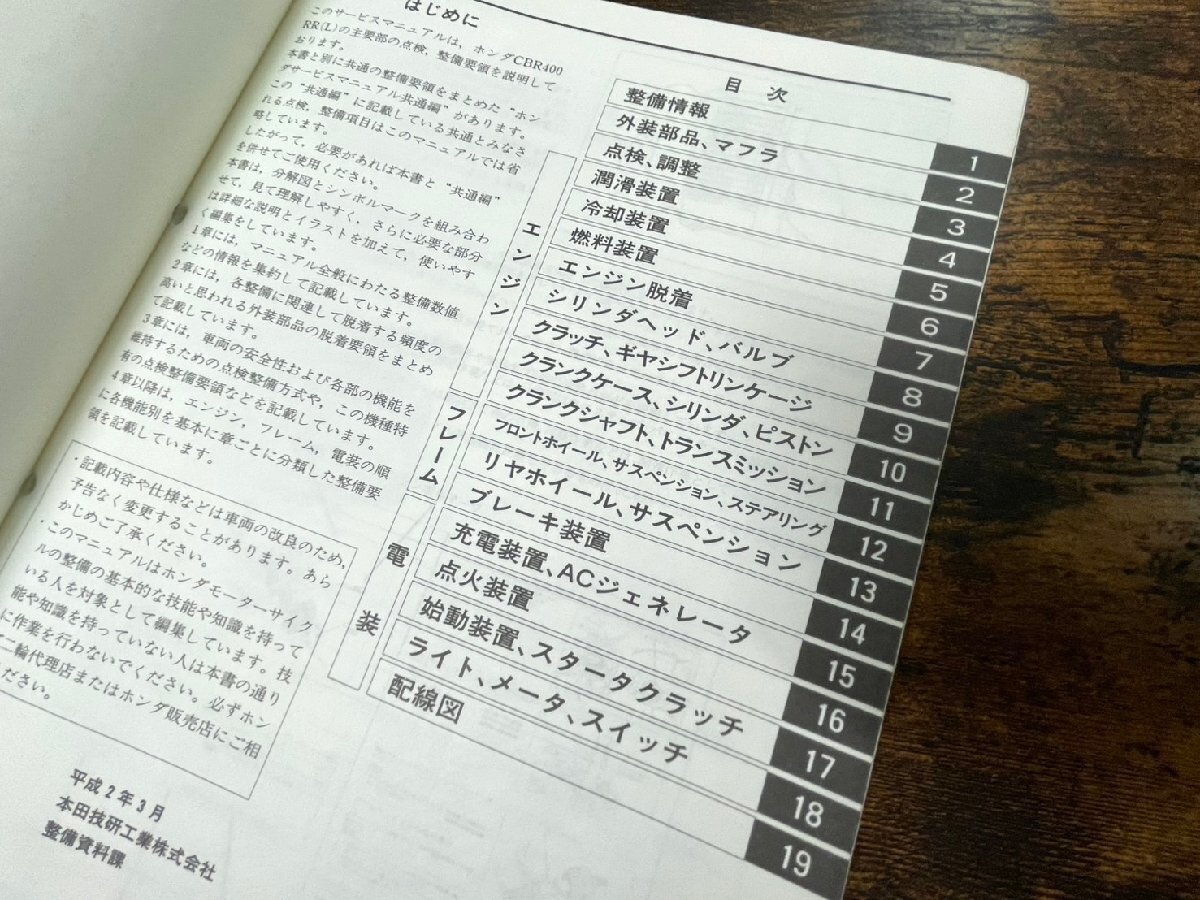 はじめに
このサービスマニュアルは，ホンダCBR400
RR(L)の主要部の点検、整備要領を説明して
おります。
本書と別に共通の整備要領をまとめた“ホン
ダサービスマニュアル共通編”があります。
この“共通編”に記載している共通とみなさ
れる点検、整備項目はこのマニュアルでは省
略しています。
したがって、必要があれば本書と“共通編”
を併せてご使用ください。
本書は、分解図とシンボルマークを組み合わ
せて、見て理解しやすく、さらに必要な部分
は詳細な説明とイラストを加えて、使いやす
く編集をしています。
1章には、マニュアル全般にわたる整備数値
などの情報を集約して記載しています。
2章には、各整備に関連して脱着する頻度の
高いと思われる外装部品の脱着要領をまとめ
て記載しています。
3章には、車両の安全性および各部の機能を
維持するための点検整備方式や、この機種特
有の点検整備要領などを記載しています。
4章以降は、エンジン，フレーム，電装の順
に各機能別を基本に章ごとに分類した整備要
領を記載しています。
・記載内容や仕様などは車両の改良のため，
予告なく変更することがあります。あら
かじめご了承ください。
・このマニュアルはホンダモーターサイク
ルの整備の基本的な技能や知識を持って
いる人を対象として編集しています。技
能や知識を持っていない人は本書の通り
に作業を行わないでください。必ずホン
ダ二輪代理店またはホンダ販売店にご相
ださい。
平成2年3月
本田技研工業株式会社
整備資料課
目次
整備情報 1
外装部品、マフラ 2
点検、調整 3
エンジン
潤滑装置 4
冷却装置 5
燃料装置 6
エンジン脱着 7
シリンダヘッド、バルブ 8
クラッチ、ギヤシフトリンケージ 9
クランクケース、シリンダ、ピストン 10
クランクシャフト、トランスミッション 11
フレーム
フロントホイール、サスペンション、ステアリング 12
リヤホイール、サスペンション 13
ブレーキ装置 14
電装
充電装置、ACジェネレータ 15
点火装置 16
始動装置、スタータクラッチ 17
ライト、メータ、スイッチ 18
配線図 19